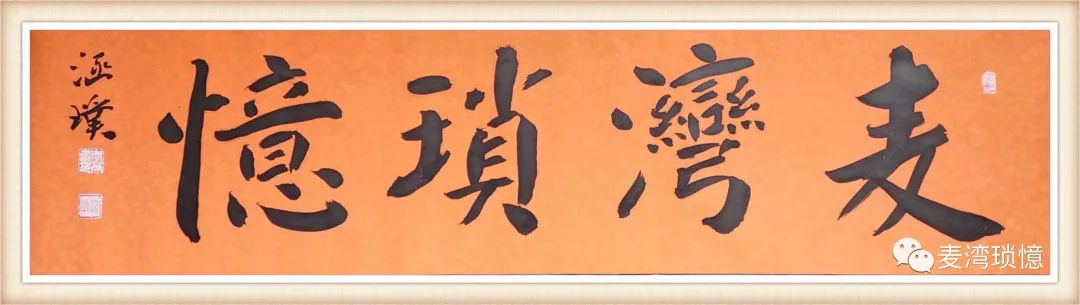 麦灣瑣憶
涵璞
麦湾琐憶